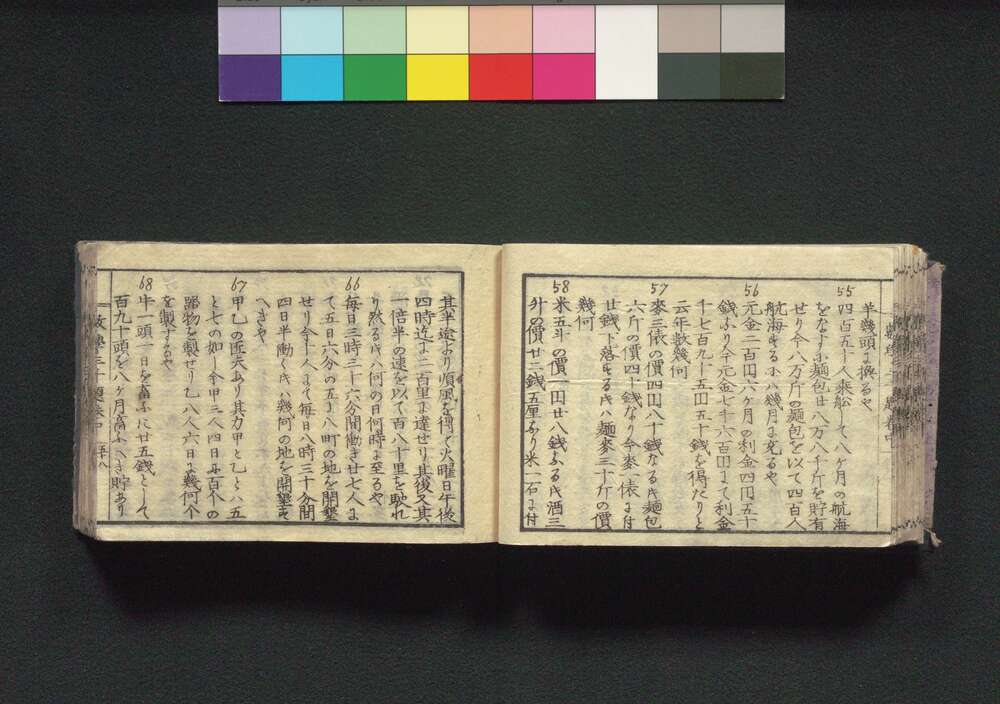 羊幾頭に換るや
55
四百五十人乗船して八ヶ月の航海
をなすに麺包廿八万八千斤を貯有
せり今八万斤の麺包を以て四百人
航海するには幾月に充るや
56
元金二百円六ヶ月の利金四円五十
銭なり今元金七千六百円にて利金
千七百九十五円五十銭を得たりと
云年数幾何
57
麥三俵の價四円八十銭なる時麺包
六斤の價四十銭なり今麥一俵に付
廿銭下落する時ハ麺麥三十斤の價
幾何
58
米五斗の價一円廿八銭なる時酒三
升の價廿二銭五厘なり米一石に付
其半途より順風を得て火曜日午後
四時迄に二百里に達せり其後又其
一倍半の速を以て百八十里を馳れ
り然る時ハ何の日何時に至るや
66
毎日三時三十六分間働き廿七人に
て五日六分の五に八町の地を開墾
せり今十人にて毎日八時三十分間
四日半働く時ハ幾何の地を開墾す
へきや
67
甲乙の匠夫あり其力甲と乙とハ五
と七の如し今甲三人四日に百个の
器物を製せり乙八人六日に幾何个
を製するや
68
牛一頭一日を畜ふに廿五銭として
百九十頭を八ヶ月畜ふへき貯あり